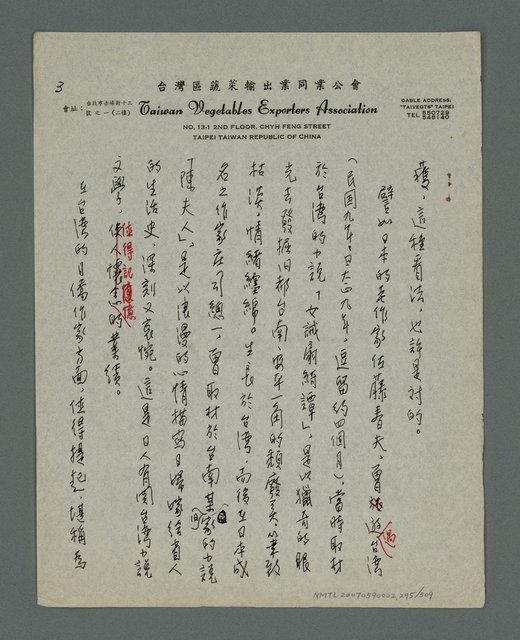 3
台灣區蔬菜輸出業同業公會
會址：台北市赤峰街十三號之一（二樓）
Taiwan Vegetables Exporters Association
NO. 13-1 2ND FLOOR, CHYH FENG STREET
TAIPEI TAIWAN REPUBLIC OF CHINA
CABLE ADDRESS:
"TAIVEGTS" TAIPEI
TEL 550729
546140
穫，這種看法，也許是对的。
譬如日本的老作家佐藤春夫，曾偶遊台湾
（民国九年，日大正九年，逗留約四個月），當時取材
於台湾的小説「女誡扇綺譚」，是以獵奇的眼
光去發掘旧都台南安平一角的頹廢美，筆致
枯淡，情緒纏綿。生長於台湾，而後在日本成
名之作家庄司總一，曾取材於台南某家的小説
「陳夫人」，是以浪漫的心情描寫日婦嫁給省人
的生活史，深刻又哀惋。這是日人有関台湾小説
文學，值得記憶的業績。
在台湾的日僑作家方面，值得提起，堪稱為
NMTL20070590002_295/509